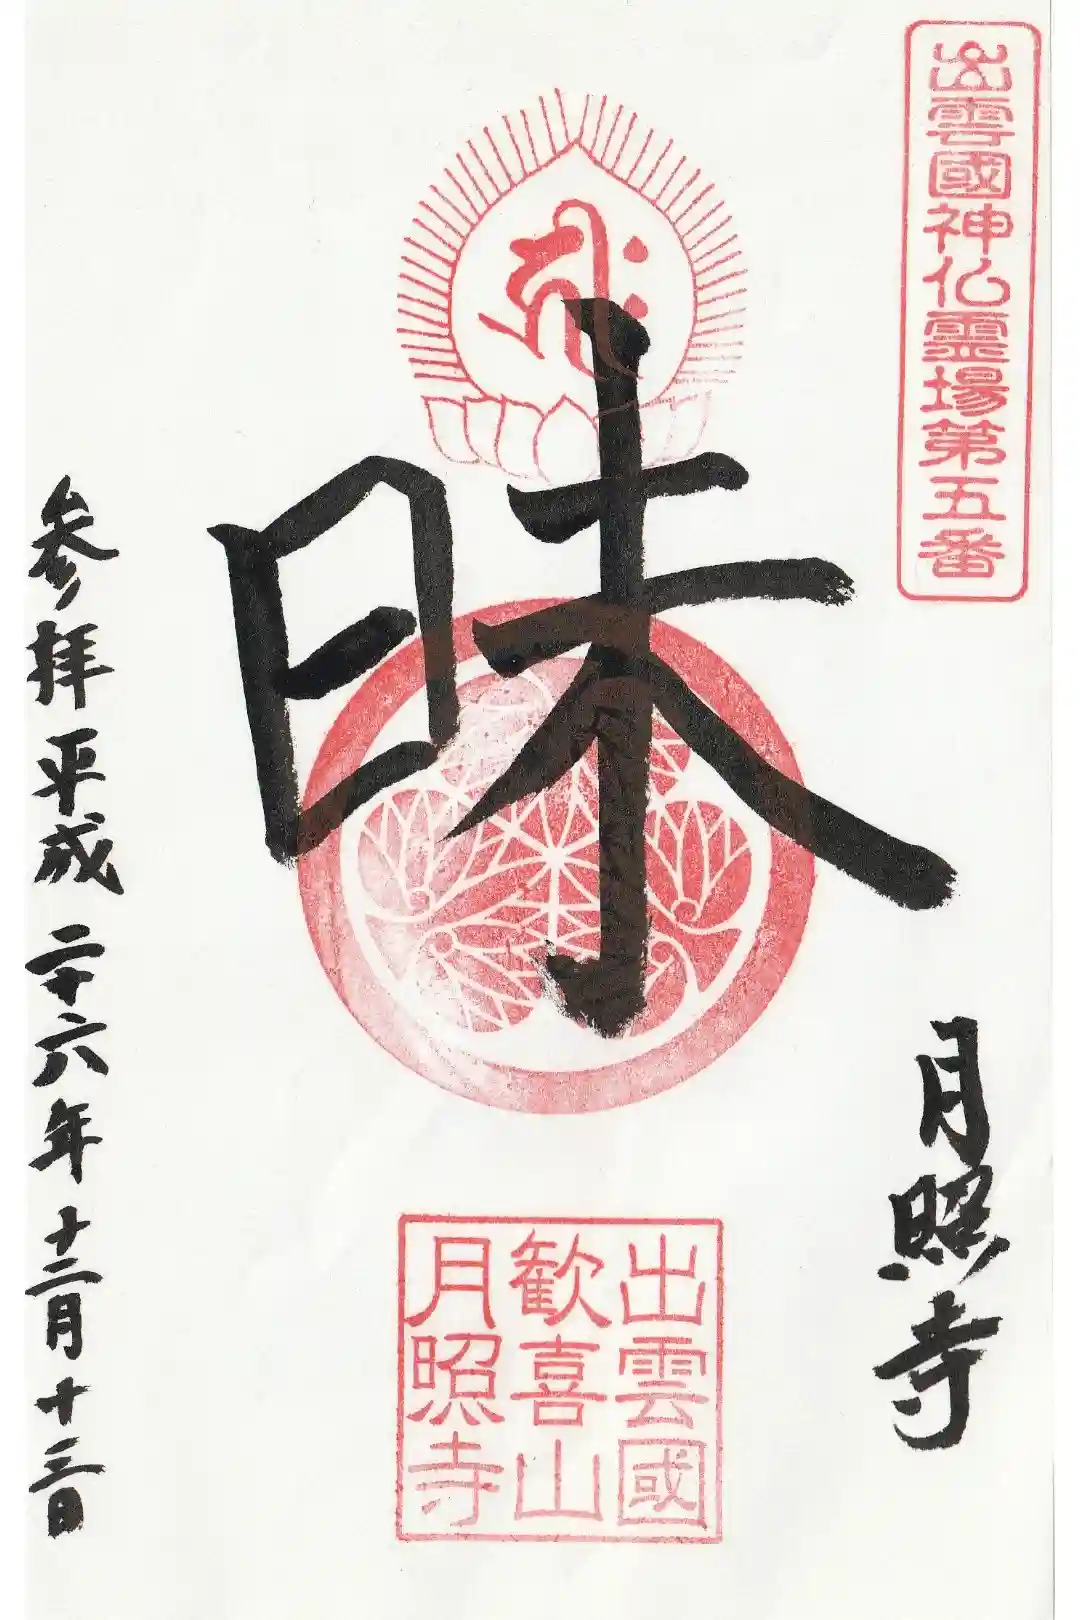 出雲國神仏霊場第五番
昧
月照寺
出雲國
歓喜山
月照寺
参拝平成二十六年十二月十三日